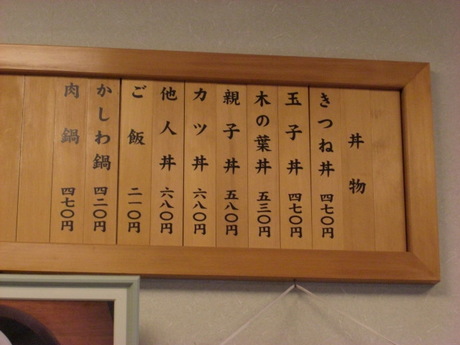 丼物
きつね丼 四七〇円
玉子丼 四七〇円
木の葉丼 五三〇円
親子丼 五八〇円
カツ丼 六八〇円
他人丼 六八〇円
ご飯 二一〇円
かしわ鍋 四二〇円
肉鍋 四七〇円